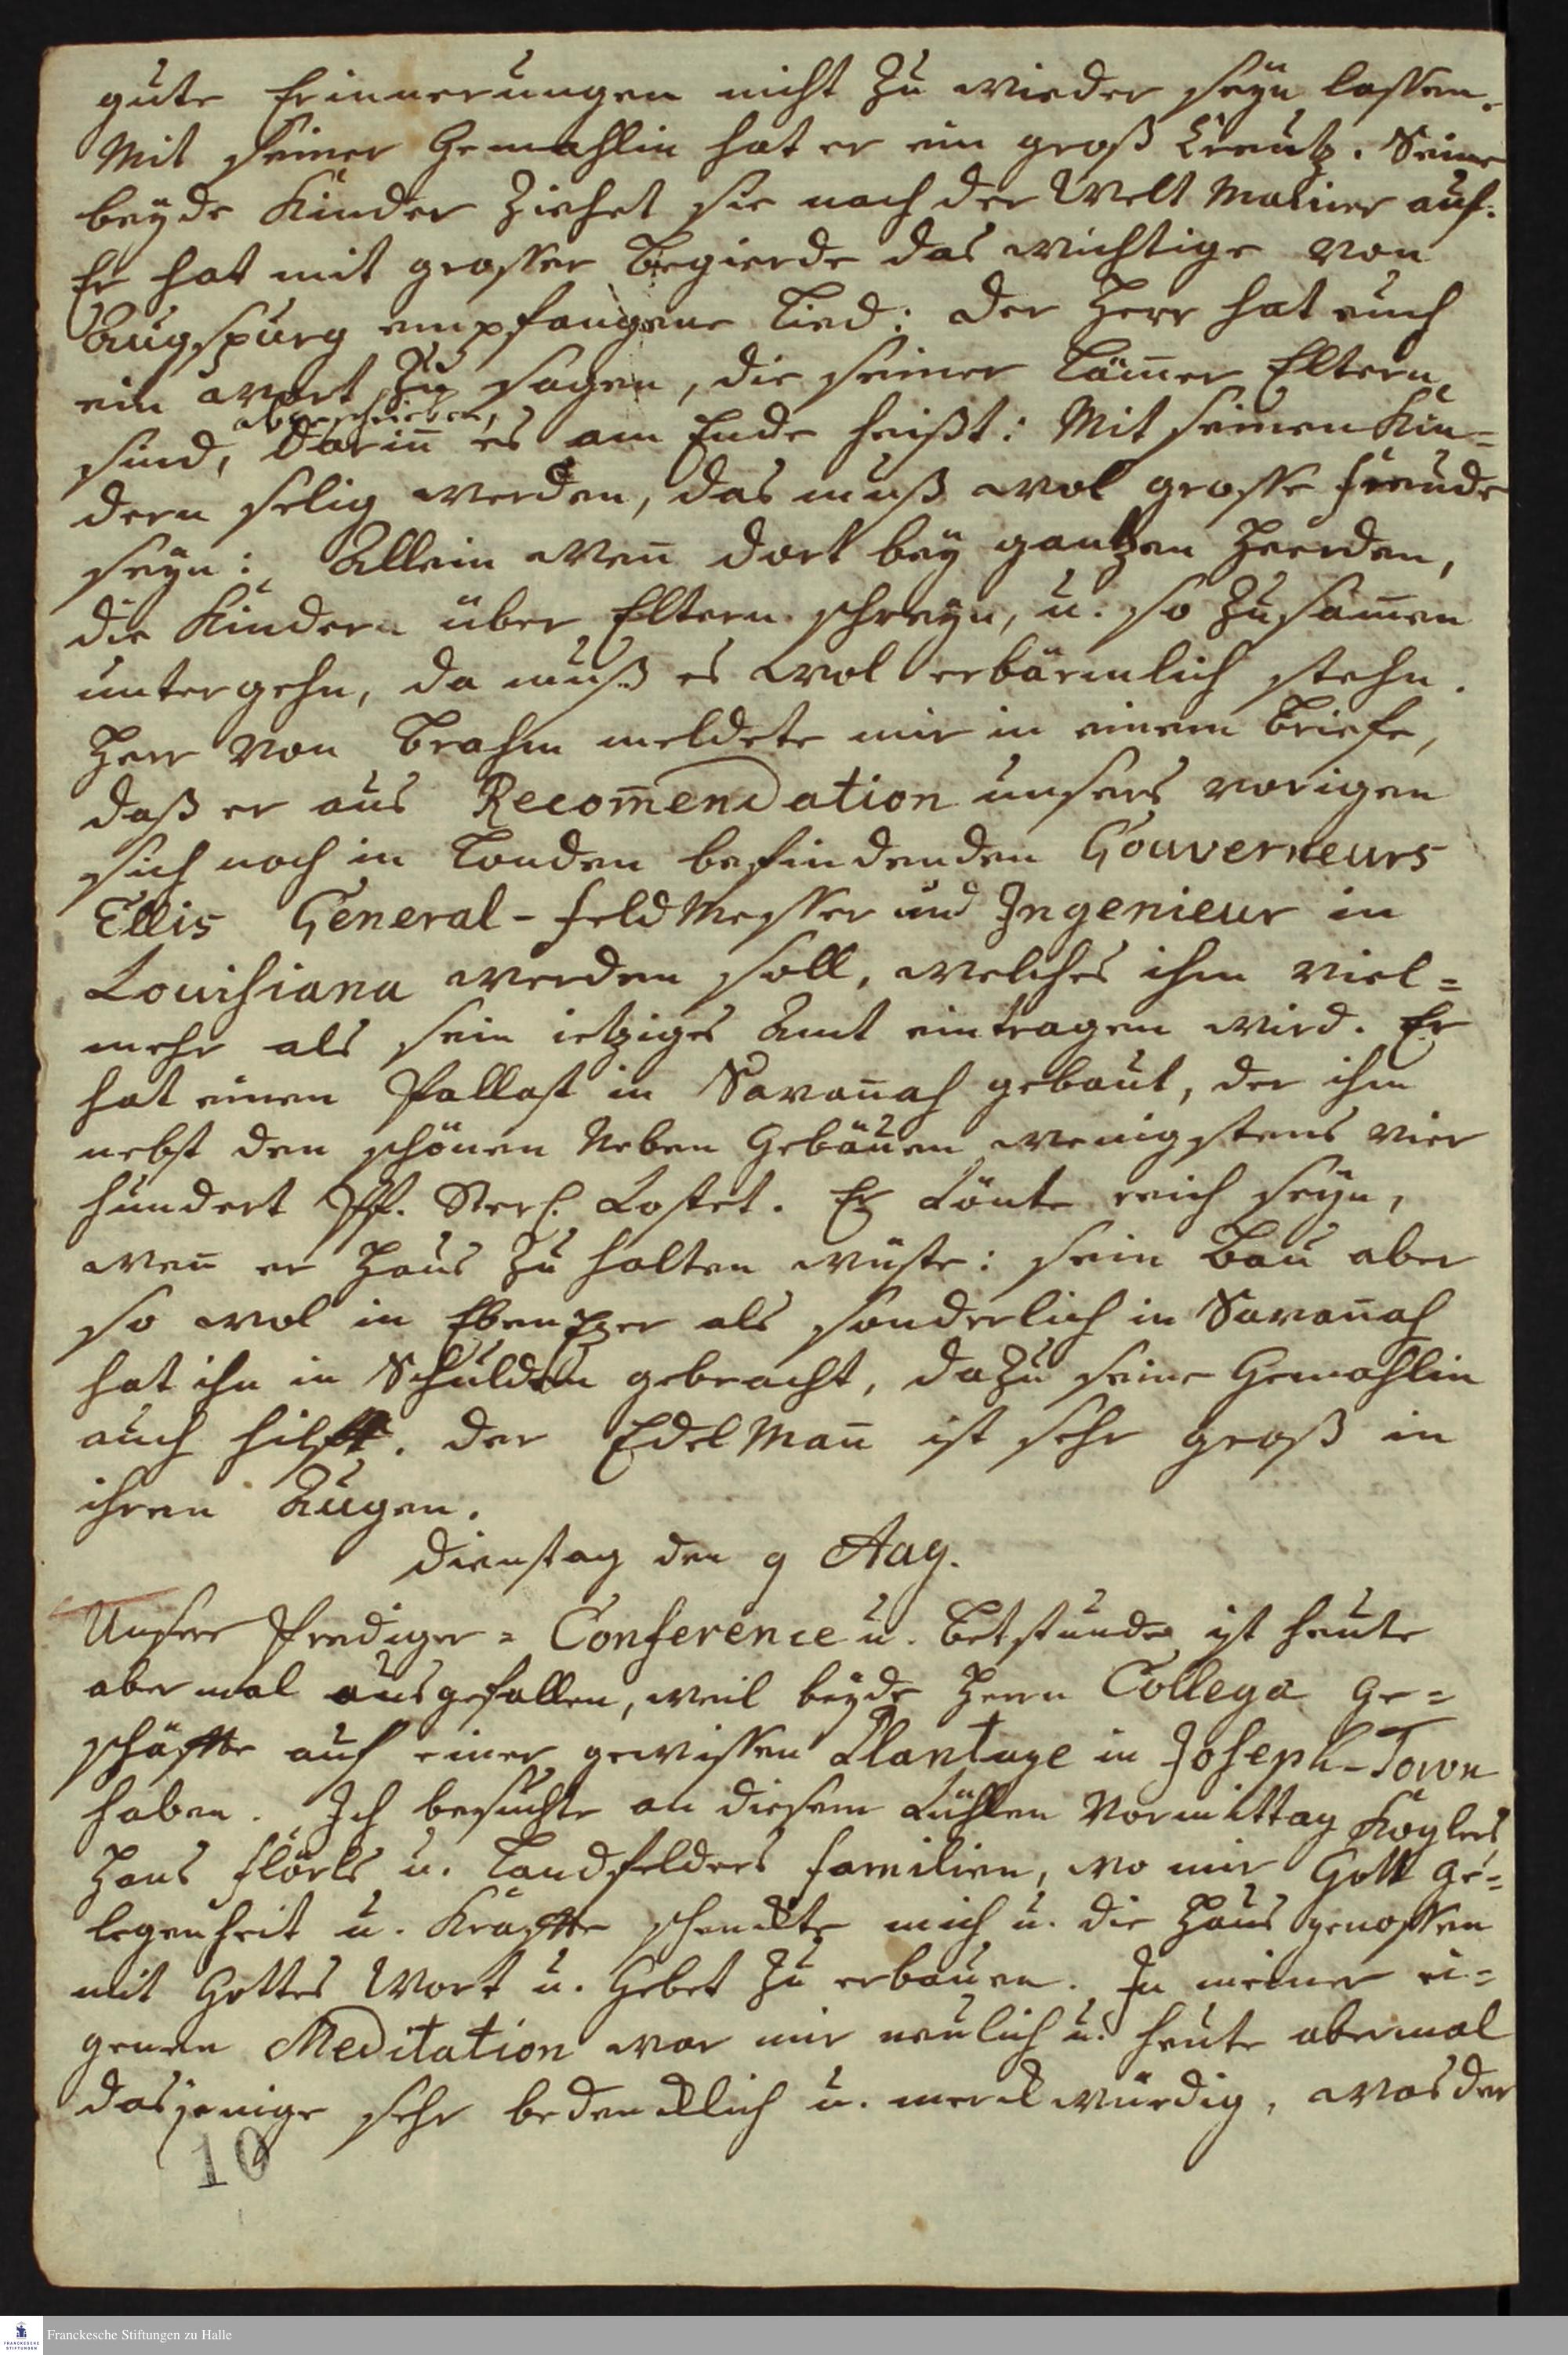 gute Erinnerungen nicht zu wieder seyn lassen.
Mit seiner Gemahlin hat er ein groß Creutz. Seine
beyde Kinder ziehet sie nach der Welt Manier auf.
Er hat mit grosser Begierde das wichtige von
Augspurg empfangene Lied: Der Herr hat euch
ein Wort zu sagen, die seiner Läm̄er Eltern
abgeschrieben,
sind, darin̄ es am Ende heißt: Mit seinen Kin=
dern selig werden, das muß wol grosse Freude
seyn: Allein wen̄ dort bey gantzen Heerden,
die Kindern über Eltern schreyn, u. so zusam̄en
untergehn, da muß es wol erbärmlich stehn.
Herr von Brahm meldete mir in einem Briefe,
daß er aus Recom̄endation unsers vorigen
sich noch in London befindenden Gouverneurs
Ellis General-FeldMesser und Ingenieur in
Louisiana werden soll, welches ihm viel=
mehr als sein ietziges Amt eintragen wird. Er
hat einen Pallast in Savan̄ah gebaut, der ihm
nebst den schönen Neben Gebäuen wenigstens vier
hundert Pf. Sterl. kostet. Er könte reich seyn,
wen̄ er Haus zu halten wüste: sein Bau aber
so wol in Ebenezer als sonderlich in Savan̄ah
hat ihn in Schulden gebracht, dazu seine Gemahlin
auch hilfft. Der EdelMan̄ ist sehr groß in
ihren Augen.
Dienstag den 9 Aug.
Unsere Prediger=Conference u. Betstunde ist heute
abermal ausgefallen, weil beyde Herrn Collega Ge=
schäffte auf einer gewissen Plantage in Joseph-Town
haben. Ich besuchte an diesem kühlen Vormittag Köglers
Hans Flörls u. Landfelders Familien, wo mir Gott Ge=
legenheit u. Kräffte schenckte mich u. die Hausgenossen
mit Gottes Wort u. Gebet zu erbauen. In meiner ei=
genen Meditation war mir neulich u. heute abermal
dasjenige sehr bedencklich u. merckwürdig, was der
10
Franckesche Stiftungen zu Halle